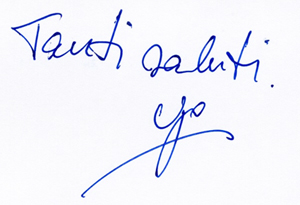 Tanti saluti.